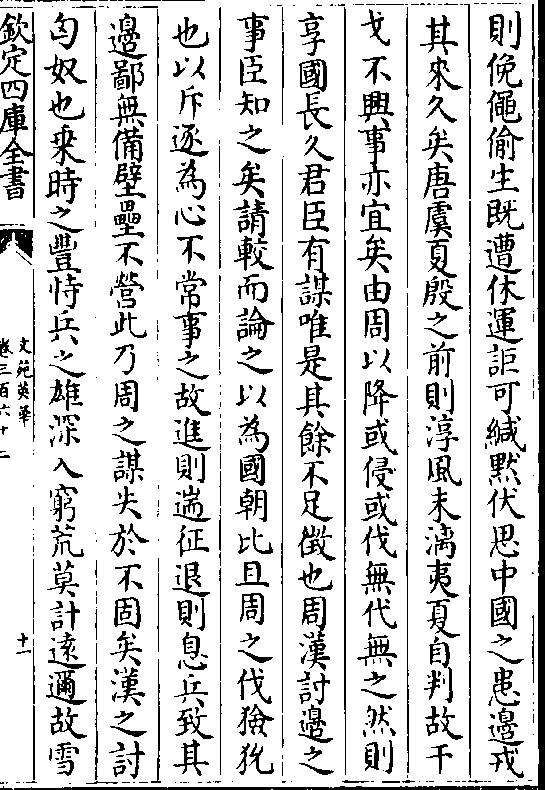 則俛僶偷生既遭休運詎可緘黙伏思中國之患邊戎
其來久矣唐虞夏殷之前則淳風未漓夷夏自判故干
戈不興事亦宜矣由周以降或侵或伐無代無之然則
享國長久君臣有謀唯是其餘不足徴也周漢討邊之
事臣知之矣請較而論之以為國朝比且周之伐獫狁
也以斥逐為心不常事之故進則遄征退則息兵致其
邊鄙無備壁壘不營此乃周之謀失於不固矣漢之討
匈奴也乗時之豐恃兵之雄深入窮荒莫計逺邇故雪
欽定四庫全書
文苑英華
卷三百六十二
十一